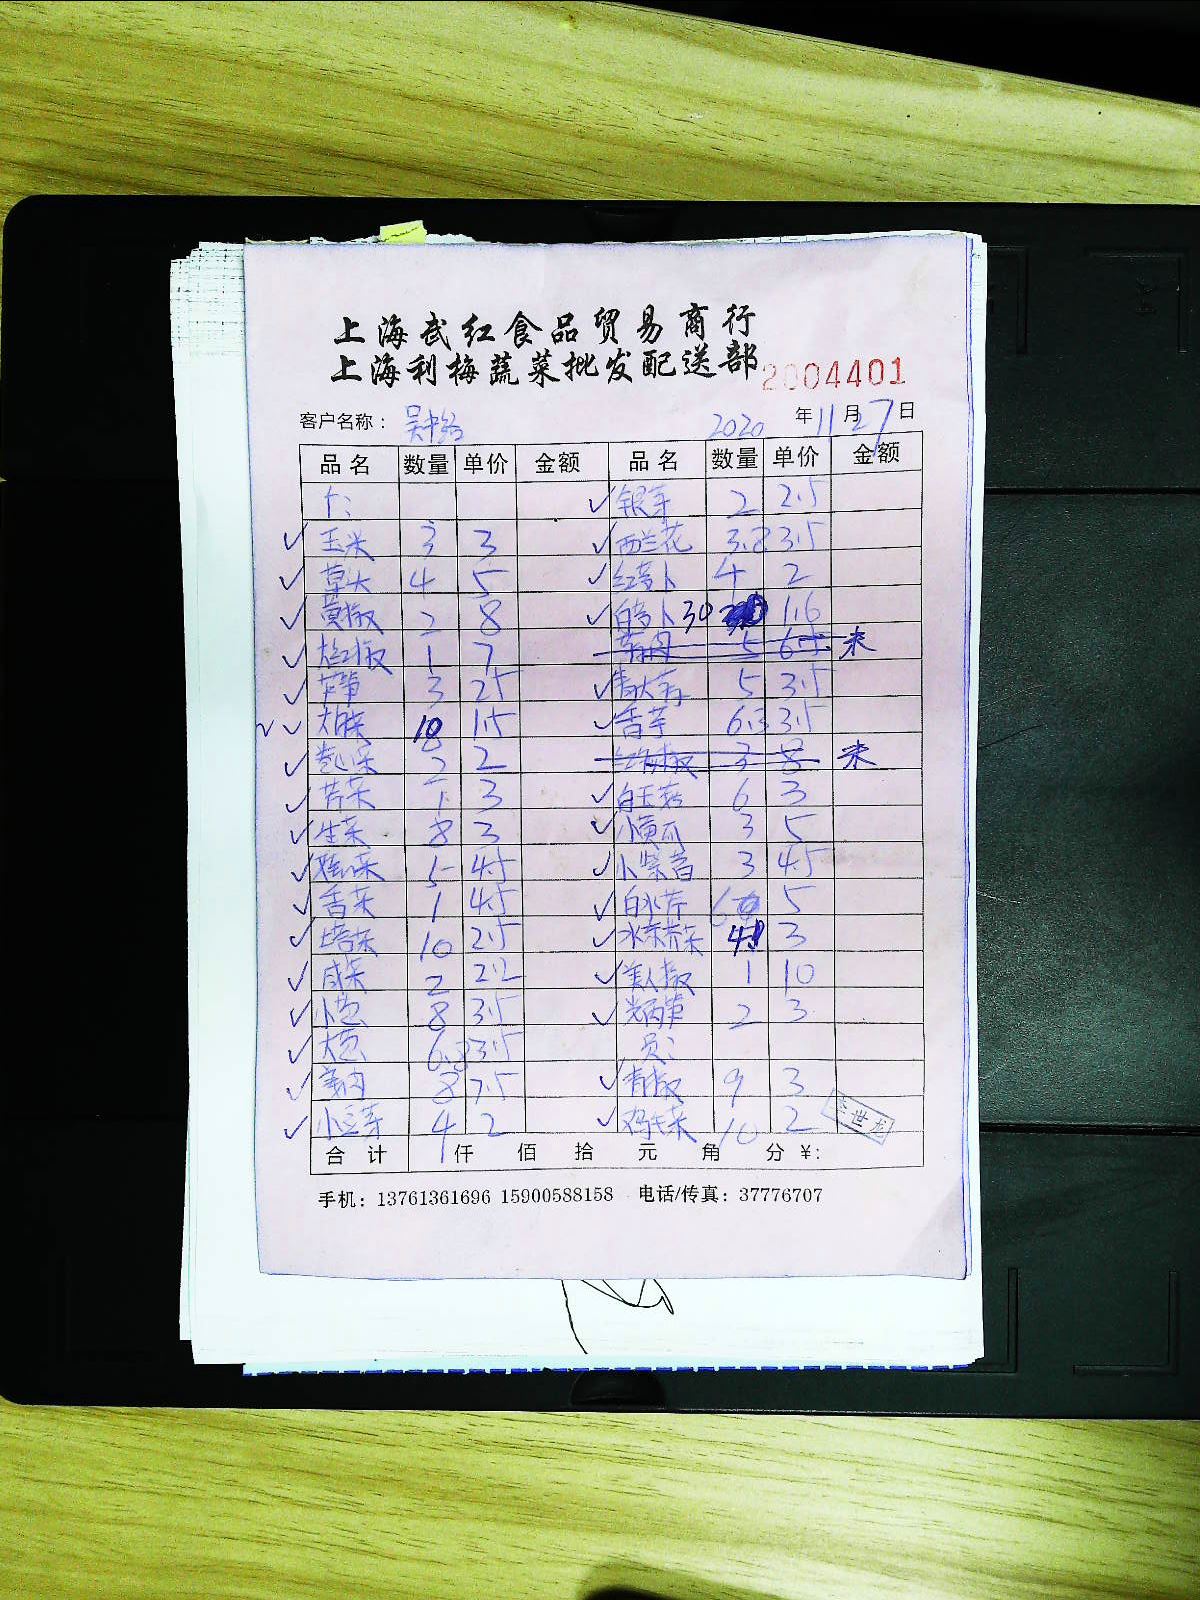 上海武红食品贸易商行
上海利梅蔬菜批发配送部
2004401
客户名称： 吴中路 2020 年 11 月 27 日
品名 数量 单价 金额 品名 数量 单价 金额
银芽 2 2.5
玉米 3 3 西兰花 3.8 3.5
草头 4 5 红萝卜 4 2
黄椒 2 8 白萝卜 30 1.6
大红椒 1 7 5 6.5 未
芦笋 3 25 5 3.5
大白菜 10 1.5 香芋 6.3 3.5
卷心菜 2 2 3 8 未
芹菜 3 白玉菇 6 3
生菜 8 3 小黄瓜 3 5
5 4.5 3 4.5
香菜 1 4.5 白水芹 5
塔菜 10 2.5 3
咸菜 2 2.2 美人椒 1 10
小葱 8 3.5 2 3
大葱 3.5
姜肉 8 7.5 青椒 9 3
小豆芽 4 2 鸡毛菜 10 2
李世龙
合计 仟 佰 拾 元 角 分 ￥:
手机：13761361696 15900588158 电话/传真：37776707